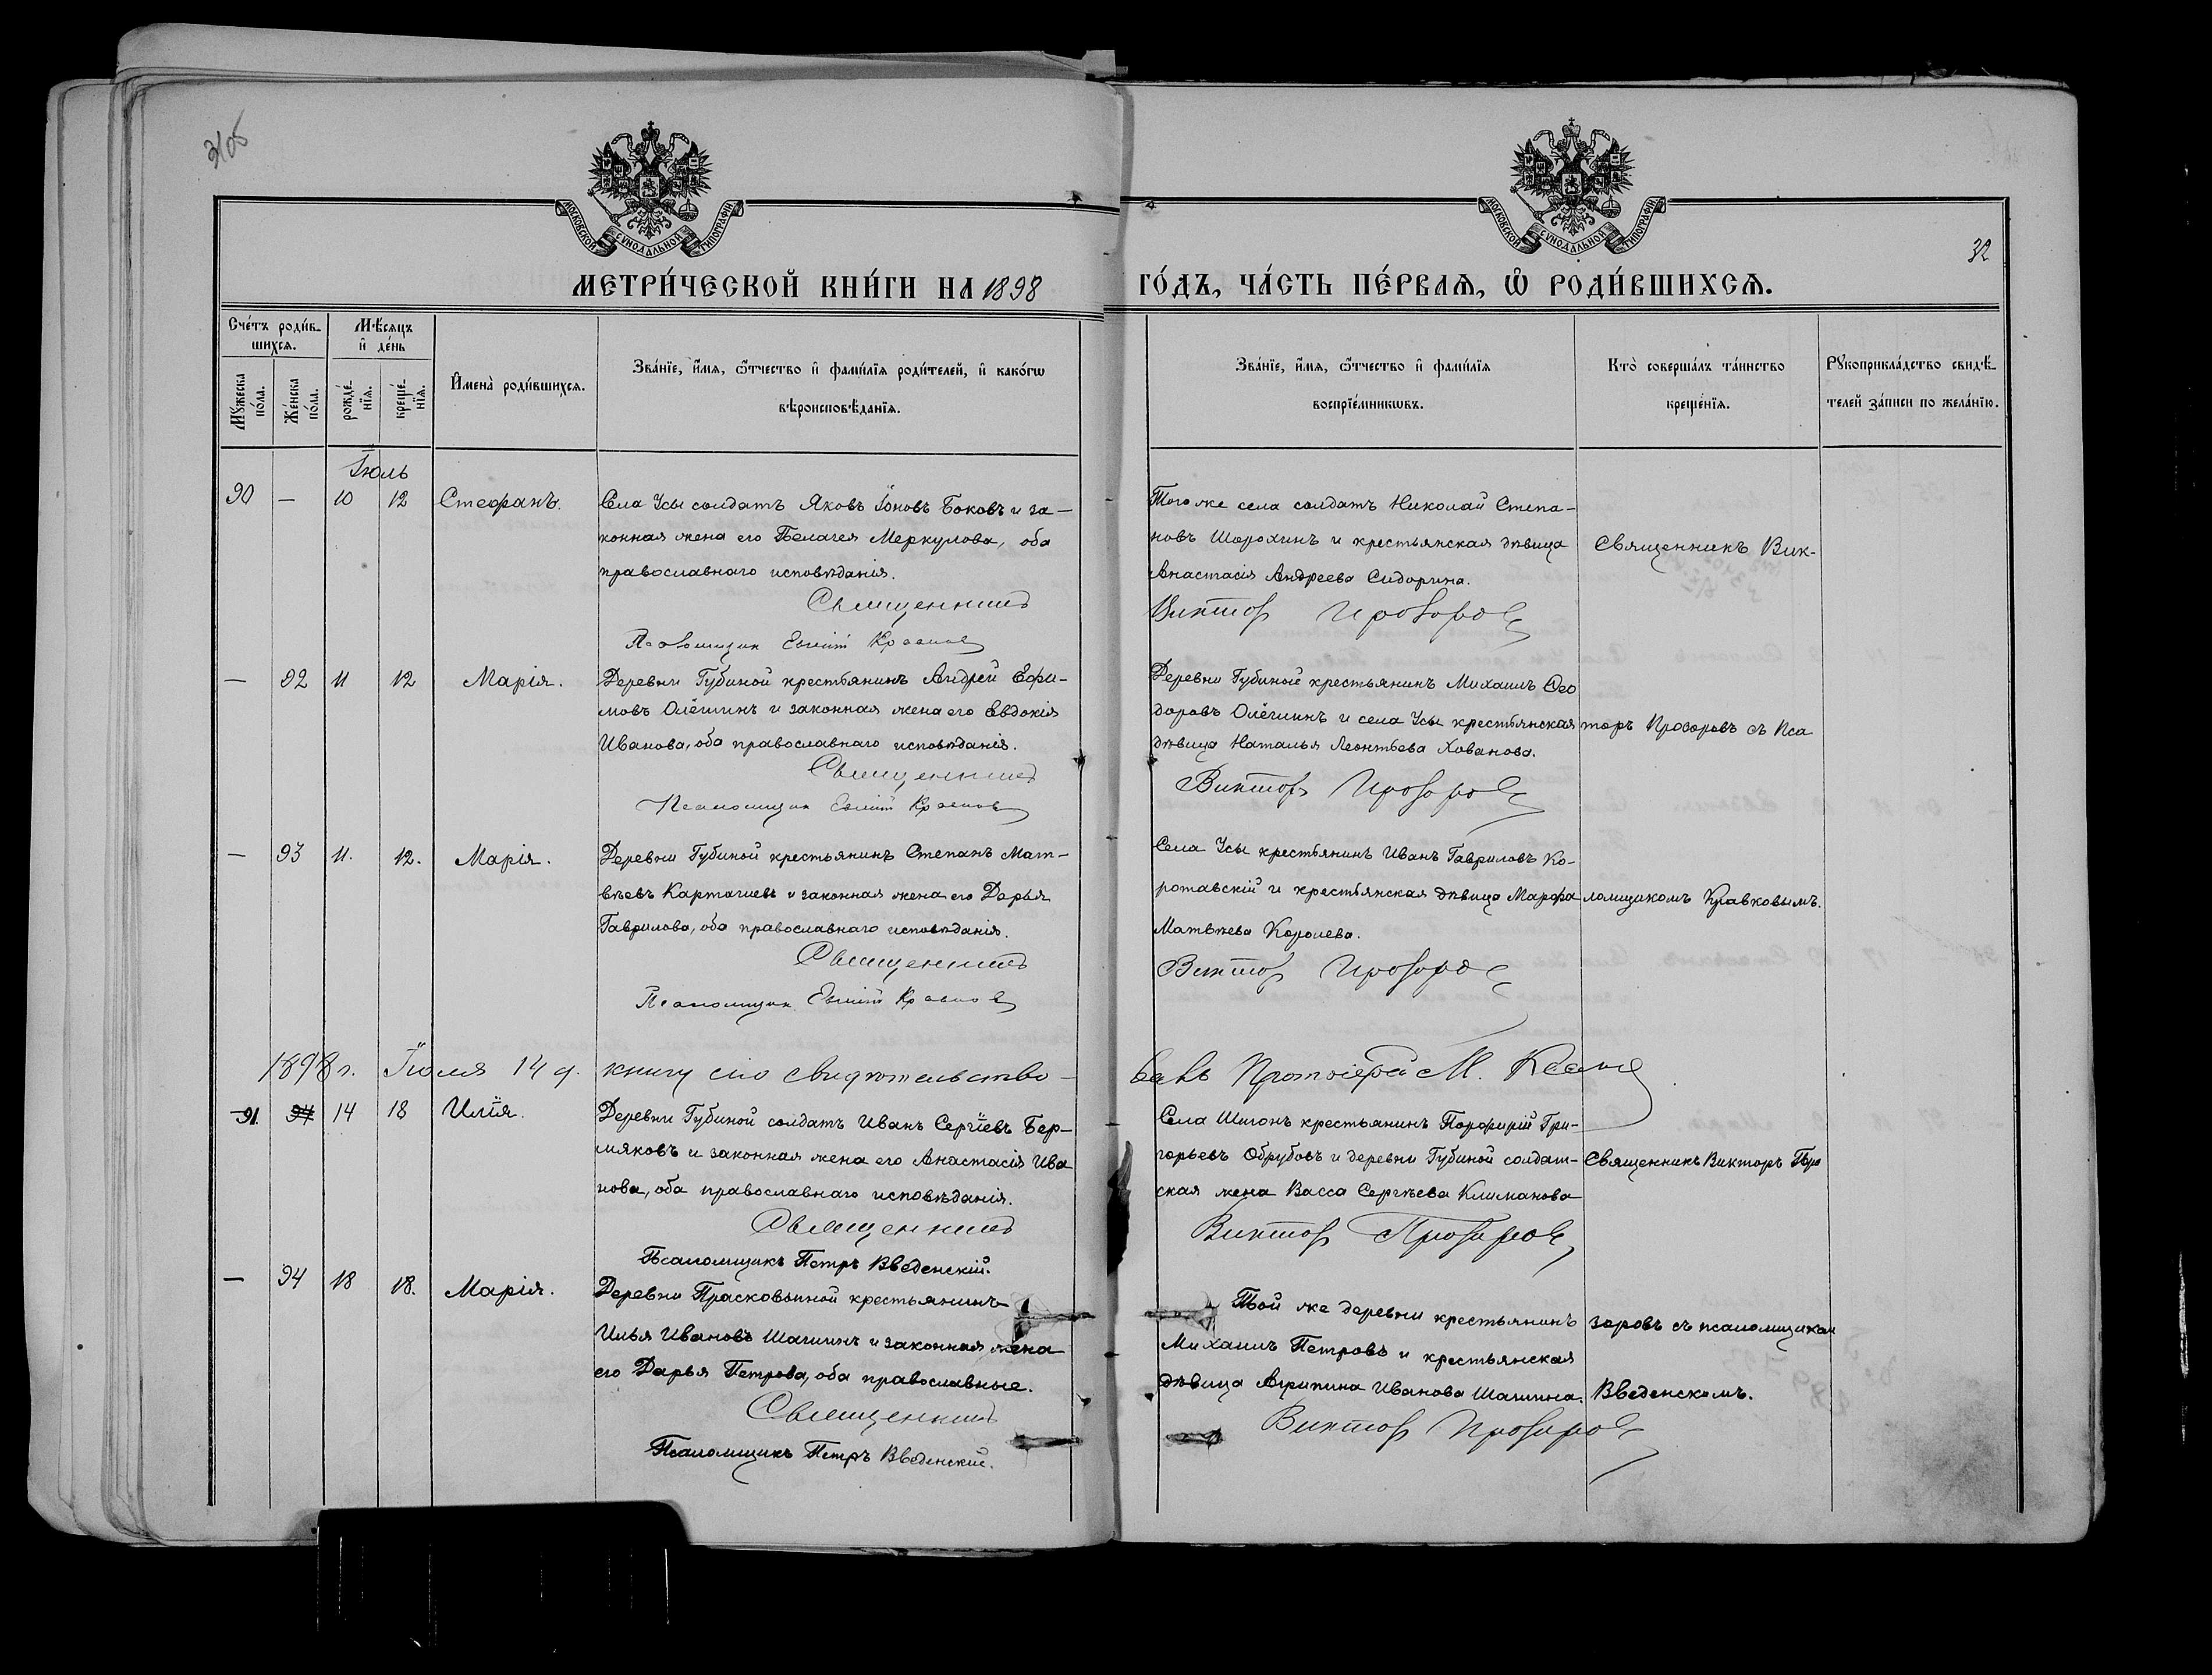 31об
МОСКОВСКОЙ СУНОДАЛЬНОЙ ТИПОГРАФІИ
МОСКОВСКОЙ СУНОДАЛЬНОЙ ТИПОГРАФІИ
32
МЕТРИ́ЧЕСКОЙ КНИ́ГИ НА 1898 ГО́ДЪ, ЧА́СТЬ ПЕ́РВАѦ, Ѡ҆ РОДИ́ВШИХСѦ.
Сче́тъ роди́в-
шихсѧ.
Мѣ́сяцъ
и҆ де́нь
Мꙋ́жеска
по́ла.
Же́нска
по́ла.
рожде́-
нїѧ.
креще́-
нїѧ.
И҆мена̀ роди́вшихсѧ.
Зва́нїе, и҆́мѧ, ѻ҆́тчество и҆ фами́лїѧ роди́телей, и҆ како́гѡ
вѣроисповѣ́данїѧ.
Зва́нїе, и҆́мѧ, ѻ҆́тчество и҆ фами́лїѧ
воспрїе́мникѡвъ.
Кто̀ соверша́лъ та́инство
креще́нїѧ.
Рꙋкоприкла́дство свидѣ́-
телей за́писи по жела́нїю.
Іюль
90 — 10 12 Стефанъ.
Села Усы солдатъ Яковъ Іоновъ Боковъ и за-
конная жена его Пелагея Меркулова, оба
православнаго исповѣданія.
Священникъ
Псаломщик Кравков
Того же села солдатъ Николай Степа-
новъ Шорохинъ и крестьянская дѣвица
Анастасія Андреева Сидорина.
Виктор Прозоров
Священникъ Вик-
— 92 11 12 Марія.
Деревни Губиной крестьянинъ Андрей Ефи-
мовъ Олёшинъ и законная жена его Евдокія
Иванова, оба православнаго исповѣданія.
Священникъ
Псаломщик Кравков
Деревни Губиной крестьянинъ Михаилъ Ѳео
доровъ Олёшинъ и села Усы крестьянская
дѣвица Наталья Леонтьева Хованова.
Викторъ Прозоров
торъ Прозоровъ съ Пса
— 93 11. 12. Марія.
Деревни Губиной крестьянинъ Степанъ Мат-
вѣевъ Карташевъ и законная жена его Дарья
Гаврилова, оба православнаго исповѣданія.
Священникъ
Псаломщик Кравков
Села Усы крестьянинъ Иванъ Гавриловъ Ко-
ротавскій и крестьянская дѣвица Марфа
Матвѣева Королева.
Виктор Прозоров
ломщикомъ Кравковымъ.
1898 г. Іюля 14 д. книгу сію свидѣтельство-
валъ Протоіерей М.
91. 94 14 18 Илія.
Деревни Губиной солдатъ Иванъ Сергіевъ Бер-
мяковъ и законная жена его Анастасія Ива
нова, оба православнаго исповѣданія.
Священникъ
Псаломщикъ Петръ Введенскій.
Села Шигонъ крестьянинъ Порфирій Гри-
горьевъ Обрубовъ и деревни Губиной солдат-
ская жена Васса Сергѣева Климанова
Виктор Прозоров
Священникъ Викторъ Про
— 94 18 18. Марія.
Деревни Прасковьиной крестьянинъ
Илья Ивановъ Шашинъ и законная жена
его Дарья Петрова, оба православные.
Священникъ
Псаломщикъ Петръ Введенскій.
Той же деревни крестьянинъ
Михаилъ Петровъ и крестьянская
дѣвица Агрипина Иванова Шашина.
Виктор Прозоров
зоровъ съ псаломщиком
Введенскомъ.